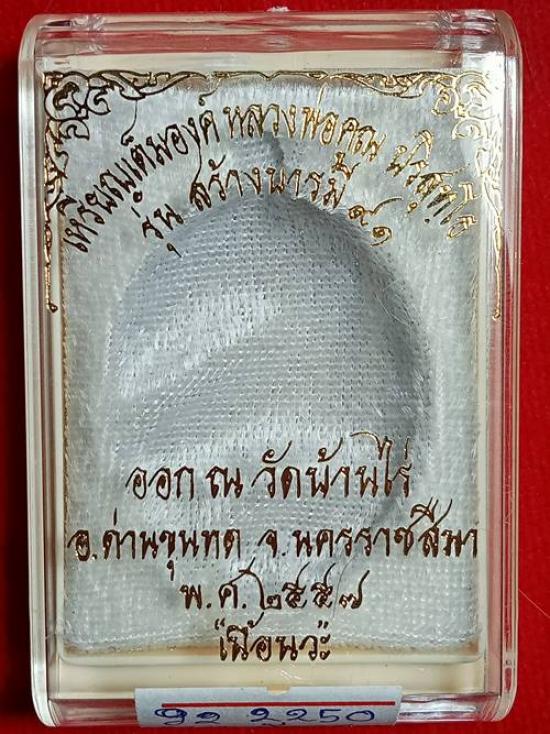 เหรียญเต็มองค์ หลวงพ่อคูณ ปริสุทฺโธ
รุ่น สร้างบารมี ๙๑
ออก ณ วัดบ้านไร่
อ.ด่านขุนทด จ.นครราชสีมา
พ.ศ.๒๕๕๗
"เนื้อนวะ"
92 2250